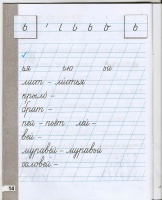 ь ь ь
ья ью ьи
лист – листья
крыло –
брат –
пей – пьёт лей –
вей –
муравей – муравьи
соловей –
14